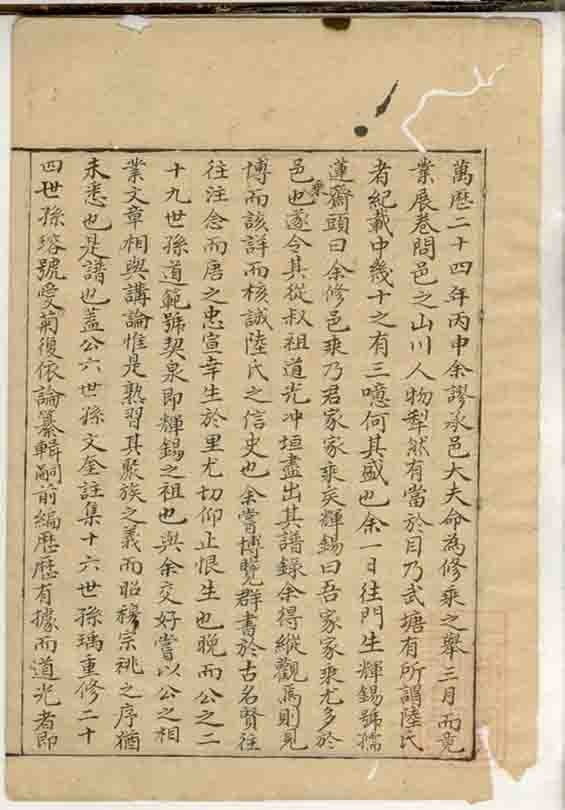 萬歷二十四年丙申余謬承邑大夫命為修乘之舉三月而竟
業展卷問邑之山川人物犁然有當於目乃武塘有所謂陸氏
者紀載中幾十之有三噫何其盛也余一日往門生輝錫號孺
蓮齋頭曰余修邑乘乃君家家乘矣輝錫曰吾家家乘尤多於
邑乘也遂令其從叔祖道光冲垣盡出其譜錄余得縱觀焉則見
博而該詳而核誠陸氏之信史也余嘗博覽群書於古名賢往
往注念而唐之忠宣幸生於里尤切仰止恨生也晚而公之二
十九世孫道範號契泉即輝錫之祖也與余交好嘗以公之相
業文章相與講論惟是熟習其聚族之義而昭穆宗祧之序猶
未悉也是譜也蓋公六世孫文奎註集十六世孫瑀重修二十
四世孫瑢號愛菊復依論纂輯嗣前編歷歷有據而道光者即